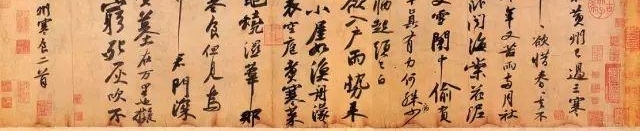 黃州已過三寒
欲惜春春去不
年又苦雨兩月秋
臥聞海棠花泥
雪闇中偷負
半真有力何殊少
病起頭已白
欲入戶雨勢來
小屋如漁舟濛
里空庖煮寒菜
竈燒濕葦那
寒食但見烏
君門深
墳墓在萬里也擬
窮死灰吹不
州寒食二首